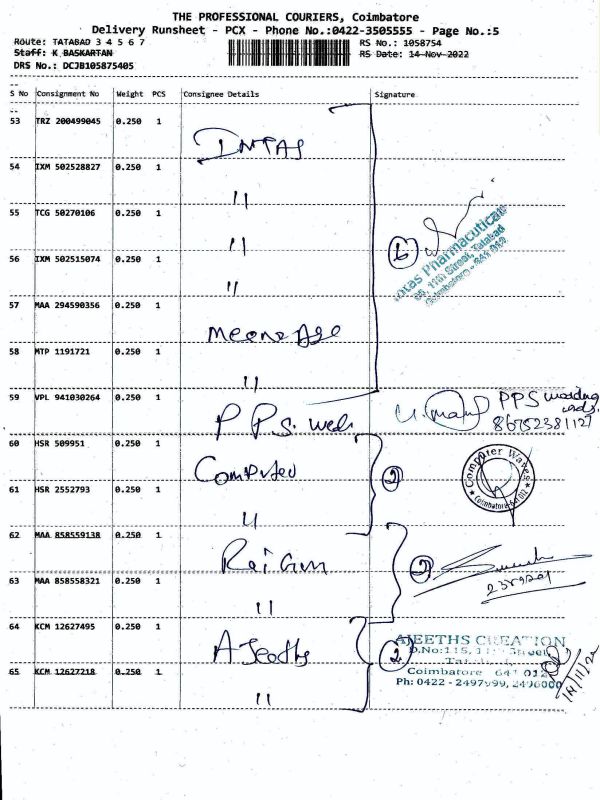 THE PROFESSIONAL COURIERS, Coimbatore
Delivery Runsheet - PCX - Phone No.:0422-3505555 - Page No.:5
Route: TATABAD 3 4 5 6 7 RS No.: 1058754
Staff: K BASKARTAN RS Date: 14-Nov-2022
DRS No.: DCJB105875405
S No Consignment No Weight PCS Consignee Details Signature
53 TRZ 200499045 0.250 1 INTAS
54 IXM 502528827 0.250 1 "
55 TCG 50270106 0.250 1 "
56 IXM 502515074 0.250 1 " 6
Intas Pharmaceuticals
11th Street, Tatabad
Coimbatore - 641 012
57 MAA 294590356 0.250 1
58 MTP 1191721 0.250 1 "
59 VPL 941030264 0.250 1 PPS. PPS
60 HSR 509951 0.250 1 Computer 2
Computer Waves
Coimbatore-641 012
61 HSR 2552793 0.250 1 "
62 MAA 858559138 0.250 1 2
63 MAA 858558321 0.250 1 "
64 KCM 12627495 0.250 1 2
AJEETHS CREATION
D.No:115,
Coimbatore 641 012
Ph: 0422 - 2497999, 2496000
65 KCM 12627218 0.250 1 "
14/11/22